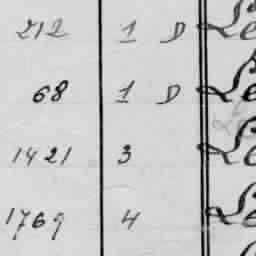 212 1 D Le
68 1 D Le
1421 3 Le
1769 4 Le